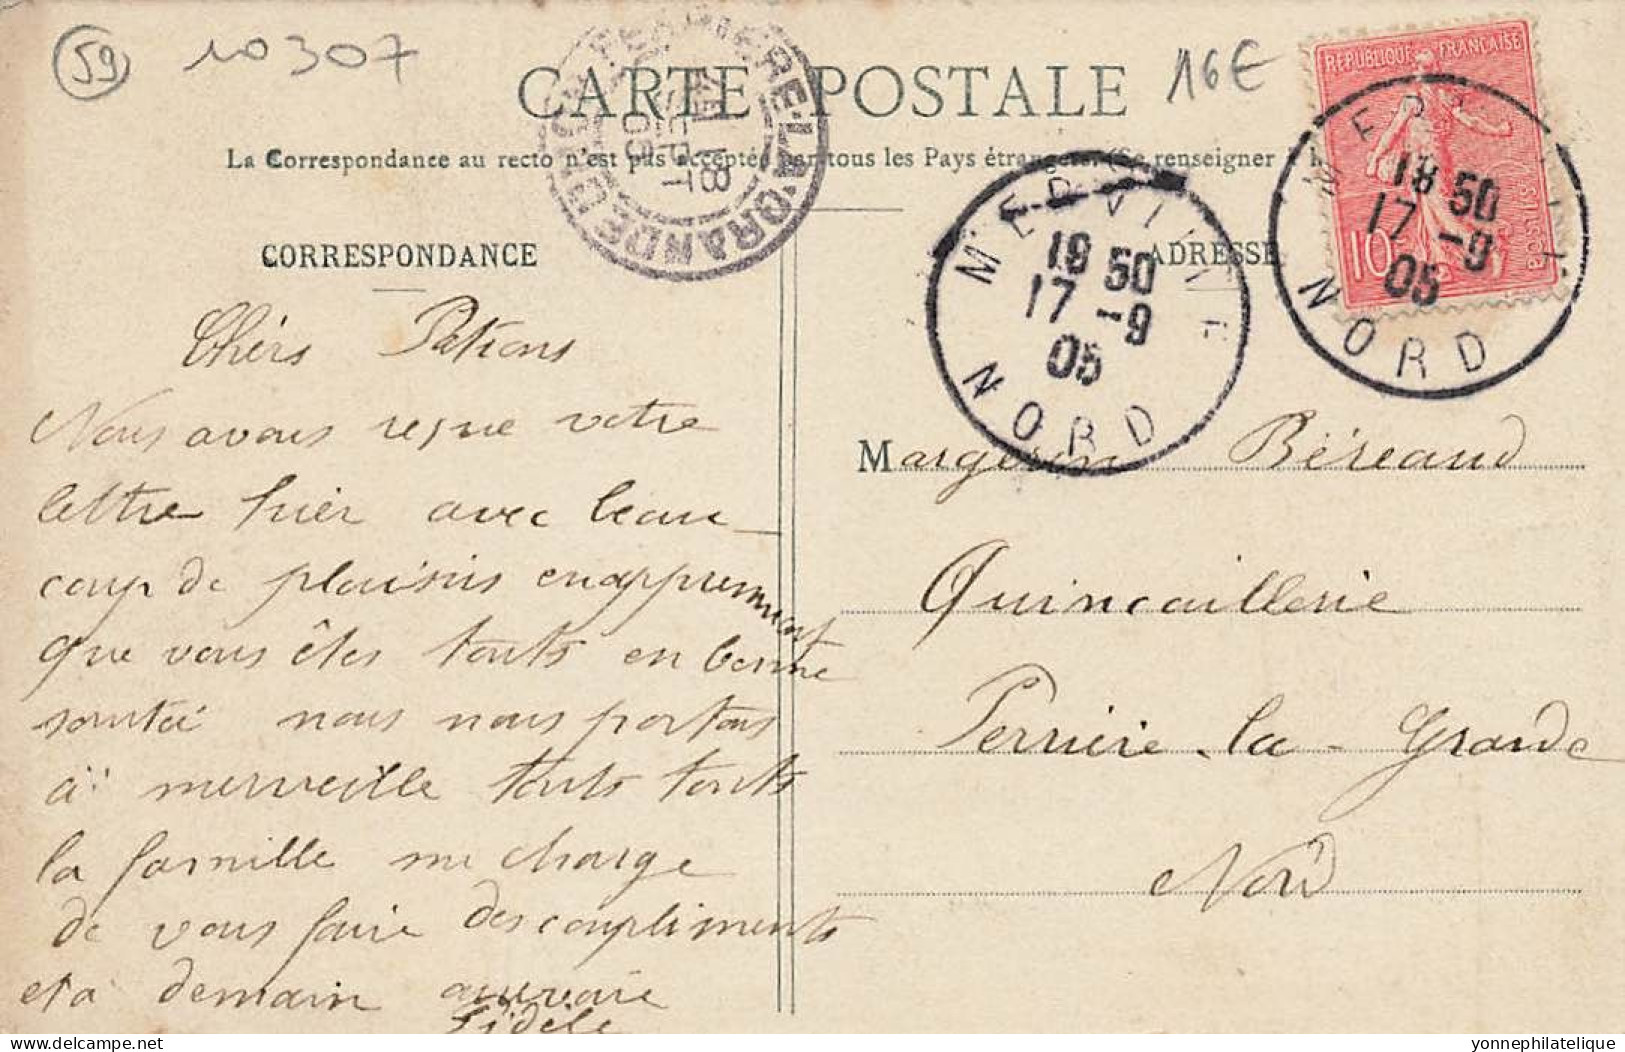 59
10307
16E
CARTE POSTALE
La Correspondance au recto n'est pas acceptée par tous les Pays étrangers. (Se renseigner
REPUBLIQUE FRANÇAISE
10
MERVILLE
18 50
17 -9
05
NORD
MERVILLE
18 50
17 -9
05
NORD
FERRIERE-LA-GRANDE
18
SEPT
05
NORD
CORRESPONDANCE
ADRESSE
Chèrs Patrons
Nous avons reçue votre
lettre hier avec beau
coup de plaisirs en apprennent
que vous êtes touts en bonne
santéé nous nous portons
à merveille touts touts
la famille me charge
de vous faire des compliments
et a demain auvoire
Fidèle
Margerin Béreaud
Quincaillerie
Ferrière-la-Grande
Nord
yonnephilatelique.delcampe.net